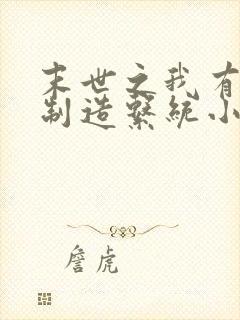 末世之我有
制造繫统小
詹虎